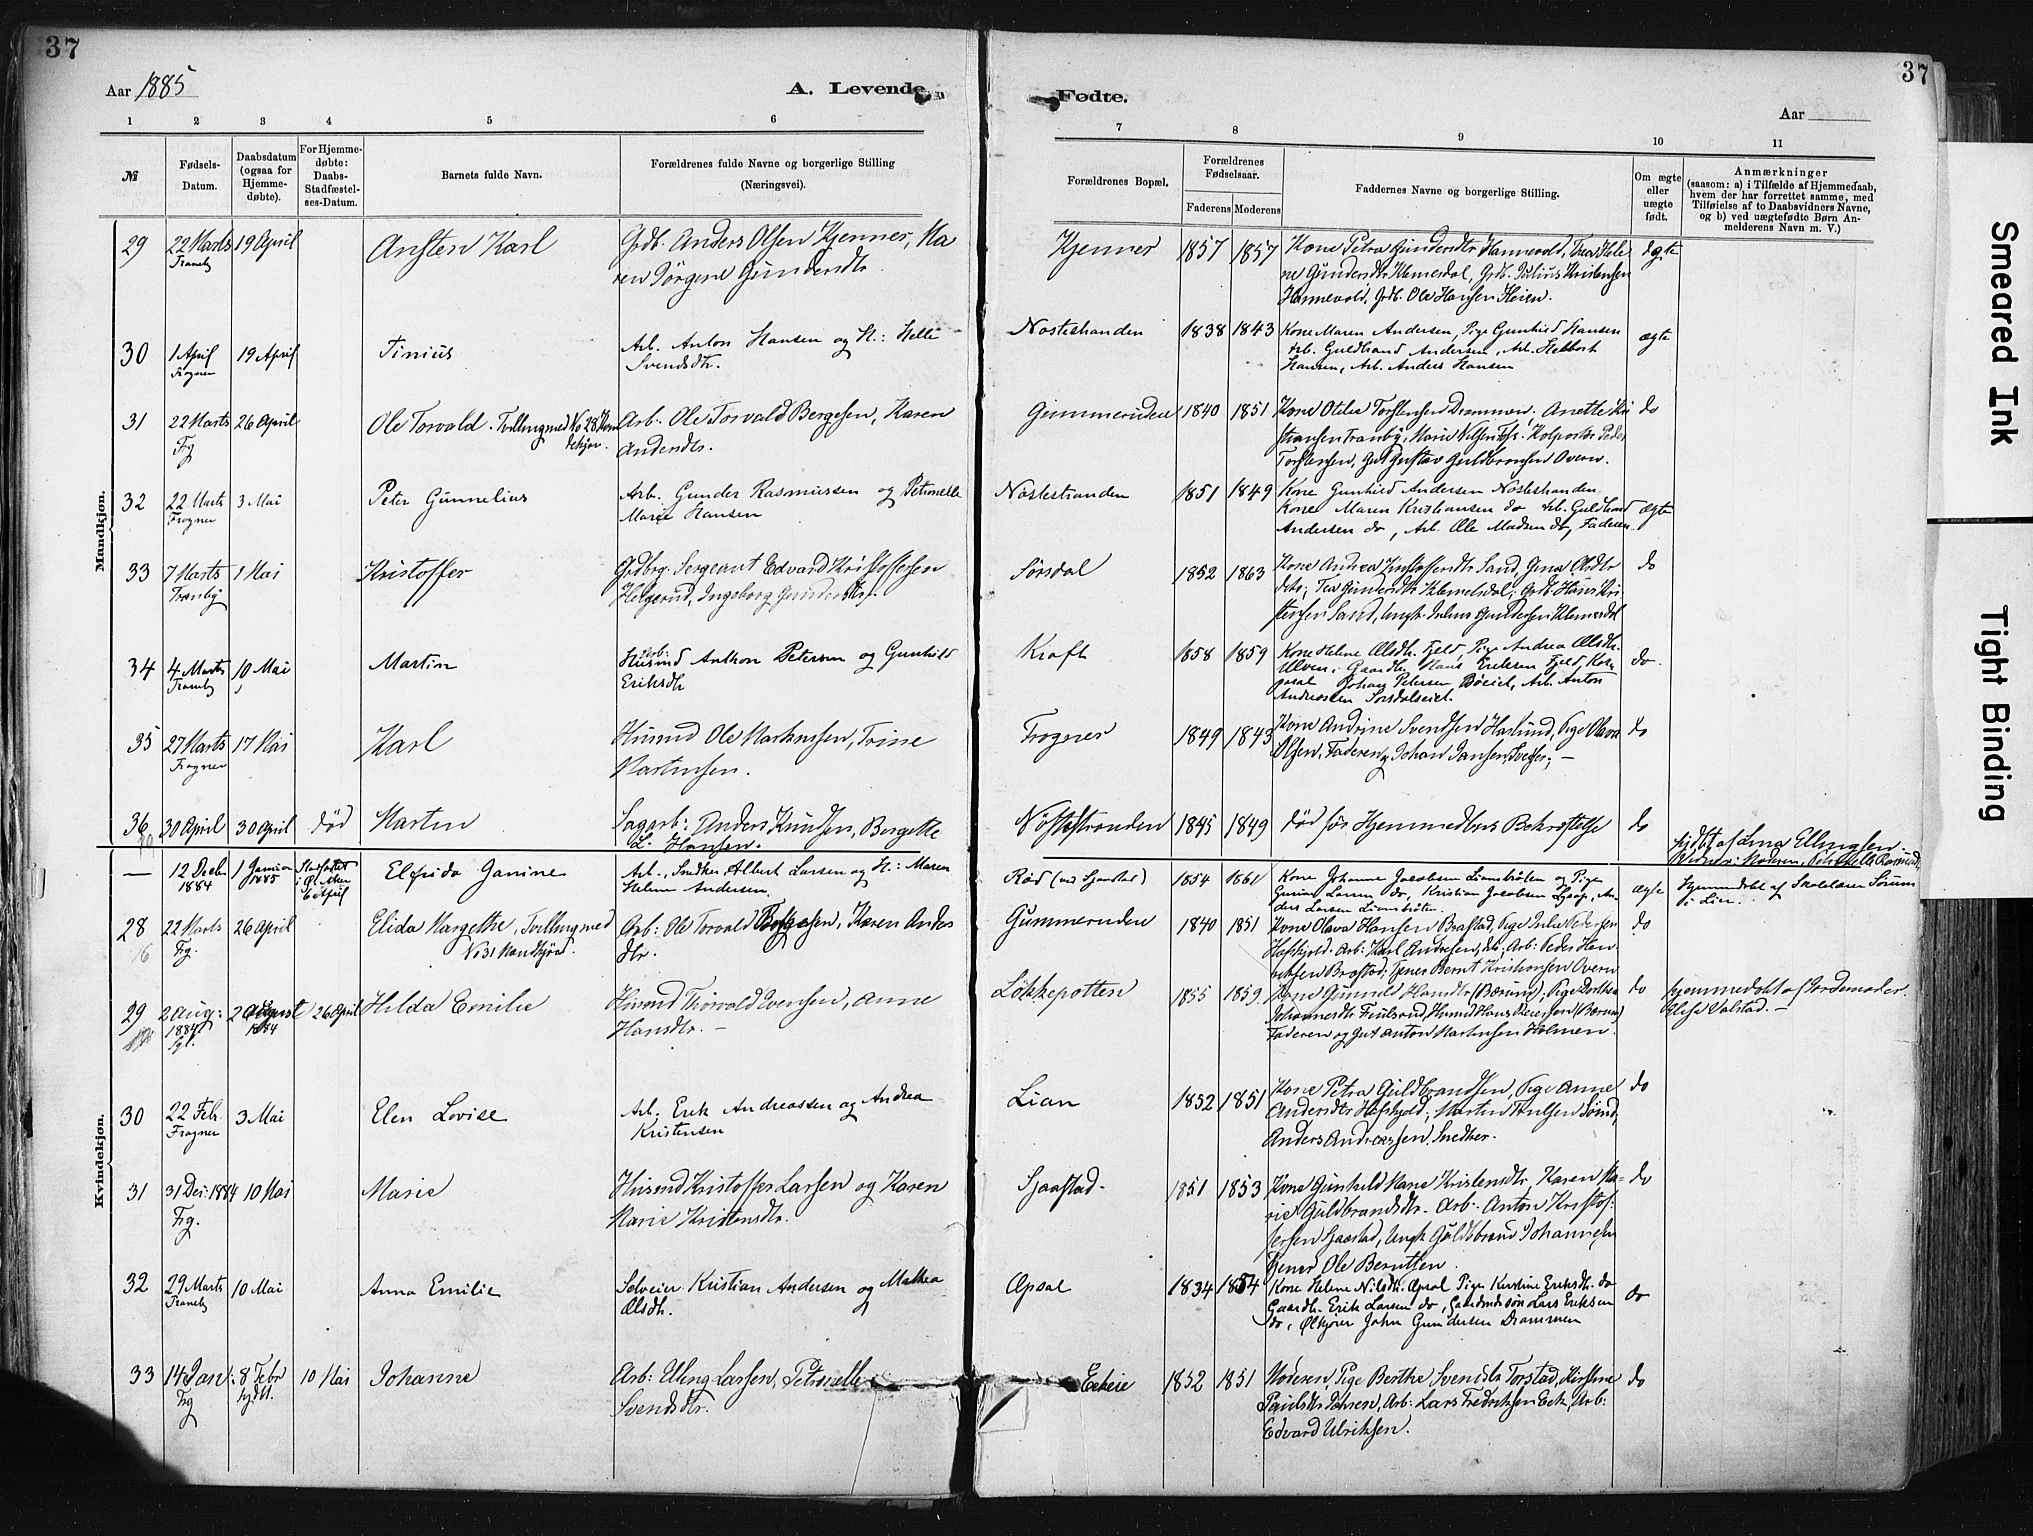 37
37
Aar 1885
A. Levende
Fødte.
Aar
1 2 3 4 5 6
7 8 9 10 11
№
Fødsels-Datum.
Daabsdatum (ogsaa for Hjemme-døbte).
For Hjemme-døbte: Daabs-Stadfæstel-ses-Datum.
Barnets fulde Navn.
Forældrenes fulde Navne og borgerlige Stilling
(Næringsvei).
Forældrenes Bopæl.
Forældrenes Fødselsaar.
Faderens Moderens
Faddernes Navne og borgerlige Stilling.
Om ægte eller uægte født.
Anmærkninger
(saasom: a) i Tilfælde af Hjemmedaab,
hvem der har forrettet samme, med
Tilføielse af to Daabsvidners Navne,
og b) ved uægtefødte Børn An-
melderens Navn m. V.)
Mandkjøn.
29 22 Marts 19 April Ansten Karl Grdb. Anders Olsen Kjenner, Ma
Tranby ren Jørgine Gundersdtr.
Kjenner 1857 1857 Kone Petra Gundersdtr Hannevold, Thea Hele ægte
ne Gundersdtr Klemesdal, Grdb. Julius Kristensen
Hannevold, Grdb. Ole Hansen Heien.
30 1 April 19 April Tinius Arb. Anton Hansen og H.: Helle
Frogner Svendsdtr.
Nostestranden 1838 1843 Kone Maren Andersen, Pige Gunhild Hansen ægte
Arb. Guldbrand Andersen, Arb.
Hansen, Arb. Anders Hansen
31 22 Marts 26 April Ole Torvald. Tvilling med No 28 Kvin
Frg dekjøn.
Arb. Ole Torvald Bergesen, Karen
Andersdtr.
Gummeruden 1840 1851 Kone Otilie Torstensen Drammen, Anette Kri do
stiansen Tranby, Marie Nilsen Foss, Kolportør Peder
Torstensen, Gut Gustav Guldbransen Overn.
32 22 Marts 3 Mai Peter Gunnelius Arb. Gunder Rasmussen og Petronelle
Frogner Marie Hansen
Nostestranden 1851 1849 Kone Gunhild Andersen Nostestranden
Kone Maren Kristiansen do Arb. Guldbrand ægte
Andersen do, Arb. Ole Madsen do, Faderen.
33 7 Marts 1 Mai Kristoffer Grdbrg. Sergeant Edvard Kristoffersen
Tranby Helgerud, Ingeborg Gundersdtr.
Sørsdal 1852 1863 Kone Andrea Kristoffersdtr Sand, Gina Olsdtr do
do; Tea Gundersdtr Klemetsdal; Grdb. Hans Kri
stensen Sand, Ungk. Julius Gundersen Klemetsdal
34 4 Marts 10 Mai Martin Arb.
Tranby Husmd Anthon Petersen og Gunhild
Eriksdtr
Kraft 1858 1859 Kone Helene Olsdtr. Fjeld, Pige Andrea Olsdtr. do.
Ulven, Gaardb. Hans Eriksen Fjeld, Kor
poral Johan Petersen Bøeiet, Arb. Anton
Andreassen Sørsdalseiet.
35 27 Marts 17 Mai Karl Husmd Ole Martinsen, Trine
Frogner Martinsen.
Frogner 1849 1843 Kone Andrine Svendsen Haslund, Pige Olava do
Olsen, Faderen, Johan Jansen Svedser, —
36 30 April 30 April død Martin Sagarb: Anders Knudsen, Bergette
L. Hansen.
Nøstestranden 1845 1849 død før Hjemmedbens Bekræftelse do
hjdbt af Lina Ellingsen
Vidner: Moderen, Petronelle Rasmussen
Kvindekjøn.
— 12 Decbr 1884 1 Januar 1885 Stadfæstet Elfrida Janine Arb., Snedker, Albert Larsen og H.: Maren
Helene Andersen.
Rød 1854 1861 Kone Johanne Jacobsen Lianbråten og Pige ægte
Gunia Larsen do, Kristian Jacobsen, An
ders Larsen Lianbråten.
Hjemmedøbt af Skolelærer Sørum
i Lier.
28 22 Marts 26 April Elida Margethe, Tvilling med
Frg. No 31 Mandkjøn.
Arb: Ole Torvald Bergesen, Karen Anders
dtr.
Gummeruden 1840 1851 Kone Olava Hansen Brastad, Pige Julie Pedersen do
Hofskjold. Arb: Karl Andresen, do; Arb: Peder Hen
riksen Brastad; Tjener Bernt Kristiansen Overn
29 2 Aug: 1884 26 April Hilda Emilie Husmd Thorvald Evensen, Anne
Hansdtr. —
Løkkepotten 1855 1859 Kone Gunnild Hansdtr (Bærum); Pige do
Johannesdtr, Husmd Hans (Bærum)
Faderen og Gut Anton Martinsen Holmen.
hjemmedøbt af Jordemoder
Elise Valstad. —
30 22 Feb. 3 Mai Elen Lovise Arb. Erik Andreassen og Andrea
Frogner Kristensen
Lian 1852 1851 Kone Petra Guldbrandsen, Pige Anne do
Andersdtr Hofskjold, Martin Paulsen,
Anders Andreassen, Snedker.
31 31 Des: 1884 10 Mai Marie Husmd Kristoffer Larsen og Karen
Frg. Marie Kristensdtr.
Sjaastad. 1851 1853 Kone Gunhild Marie Kristensdtr, Karen Ma- do
rie Guldbrandsdtr. Arb. Anton Kristof-
fersen Sjaastad, Ungk. Guldbrand Johannesen
Tjener Ole Berntsen
32 29 Marts 10 Mai Anna Emilie Selveier Kristian Andersen og Mathea
Tranby Olsdtr.
Opsal 1834 1854 Kone Helene Nilsdtr. Opsal Pige Kristine Eriksdtr. do
Gaardb. Erik Larsen do, Gaardmdssøn Lars Eriksen do
do, Ølkjører John Gundersen Drammen
33 14 Jan: 8 Febr 10 Mai Johanne Arb: Uling Larsen, Petronelle
Frg hjdbt. Svendsdtr.
Eekeie 1852 1851 Moderen, Pige Berthe Svendsdtr Torstad, Kirstine do
Paulsdtr, Arb: Lars Fredriksen Eek, Arb:
Edvard Ulriksen.
Smeared Ink
Tight Binding